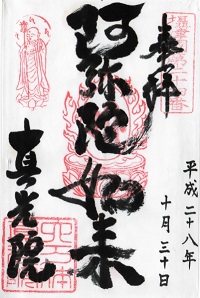 奉拝
平成二十八年
十月三十日
阿弥陀如来
真光院